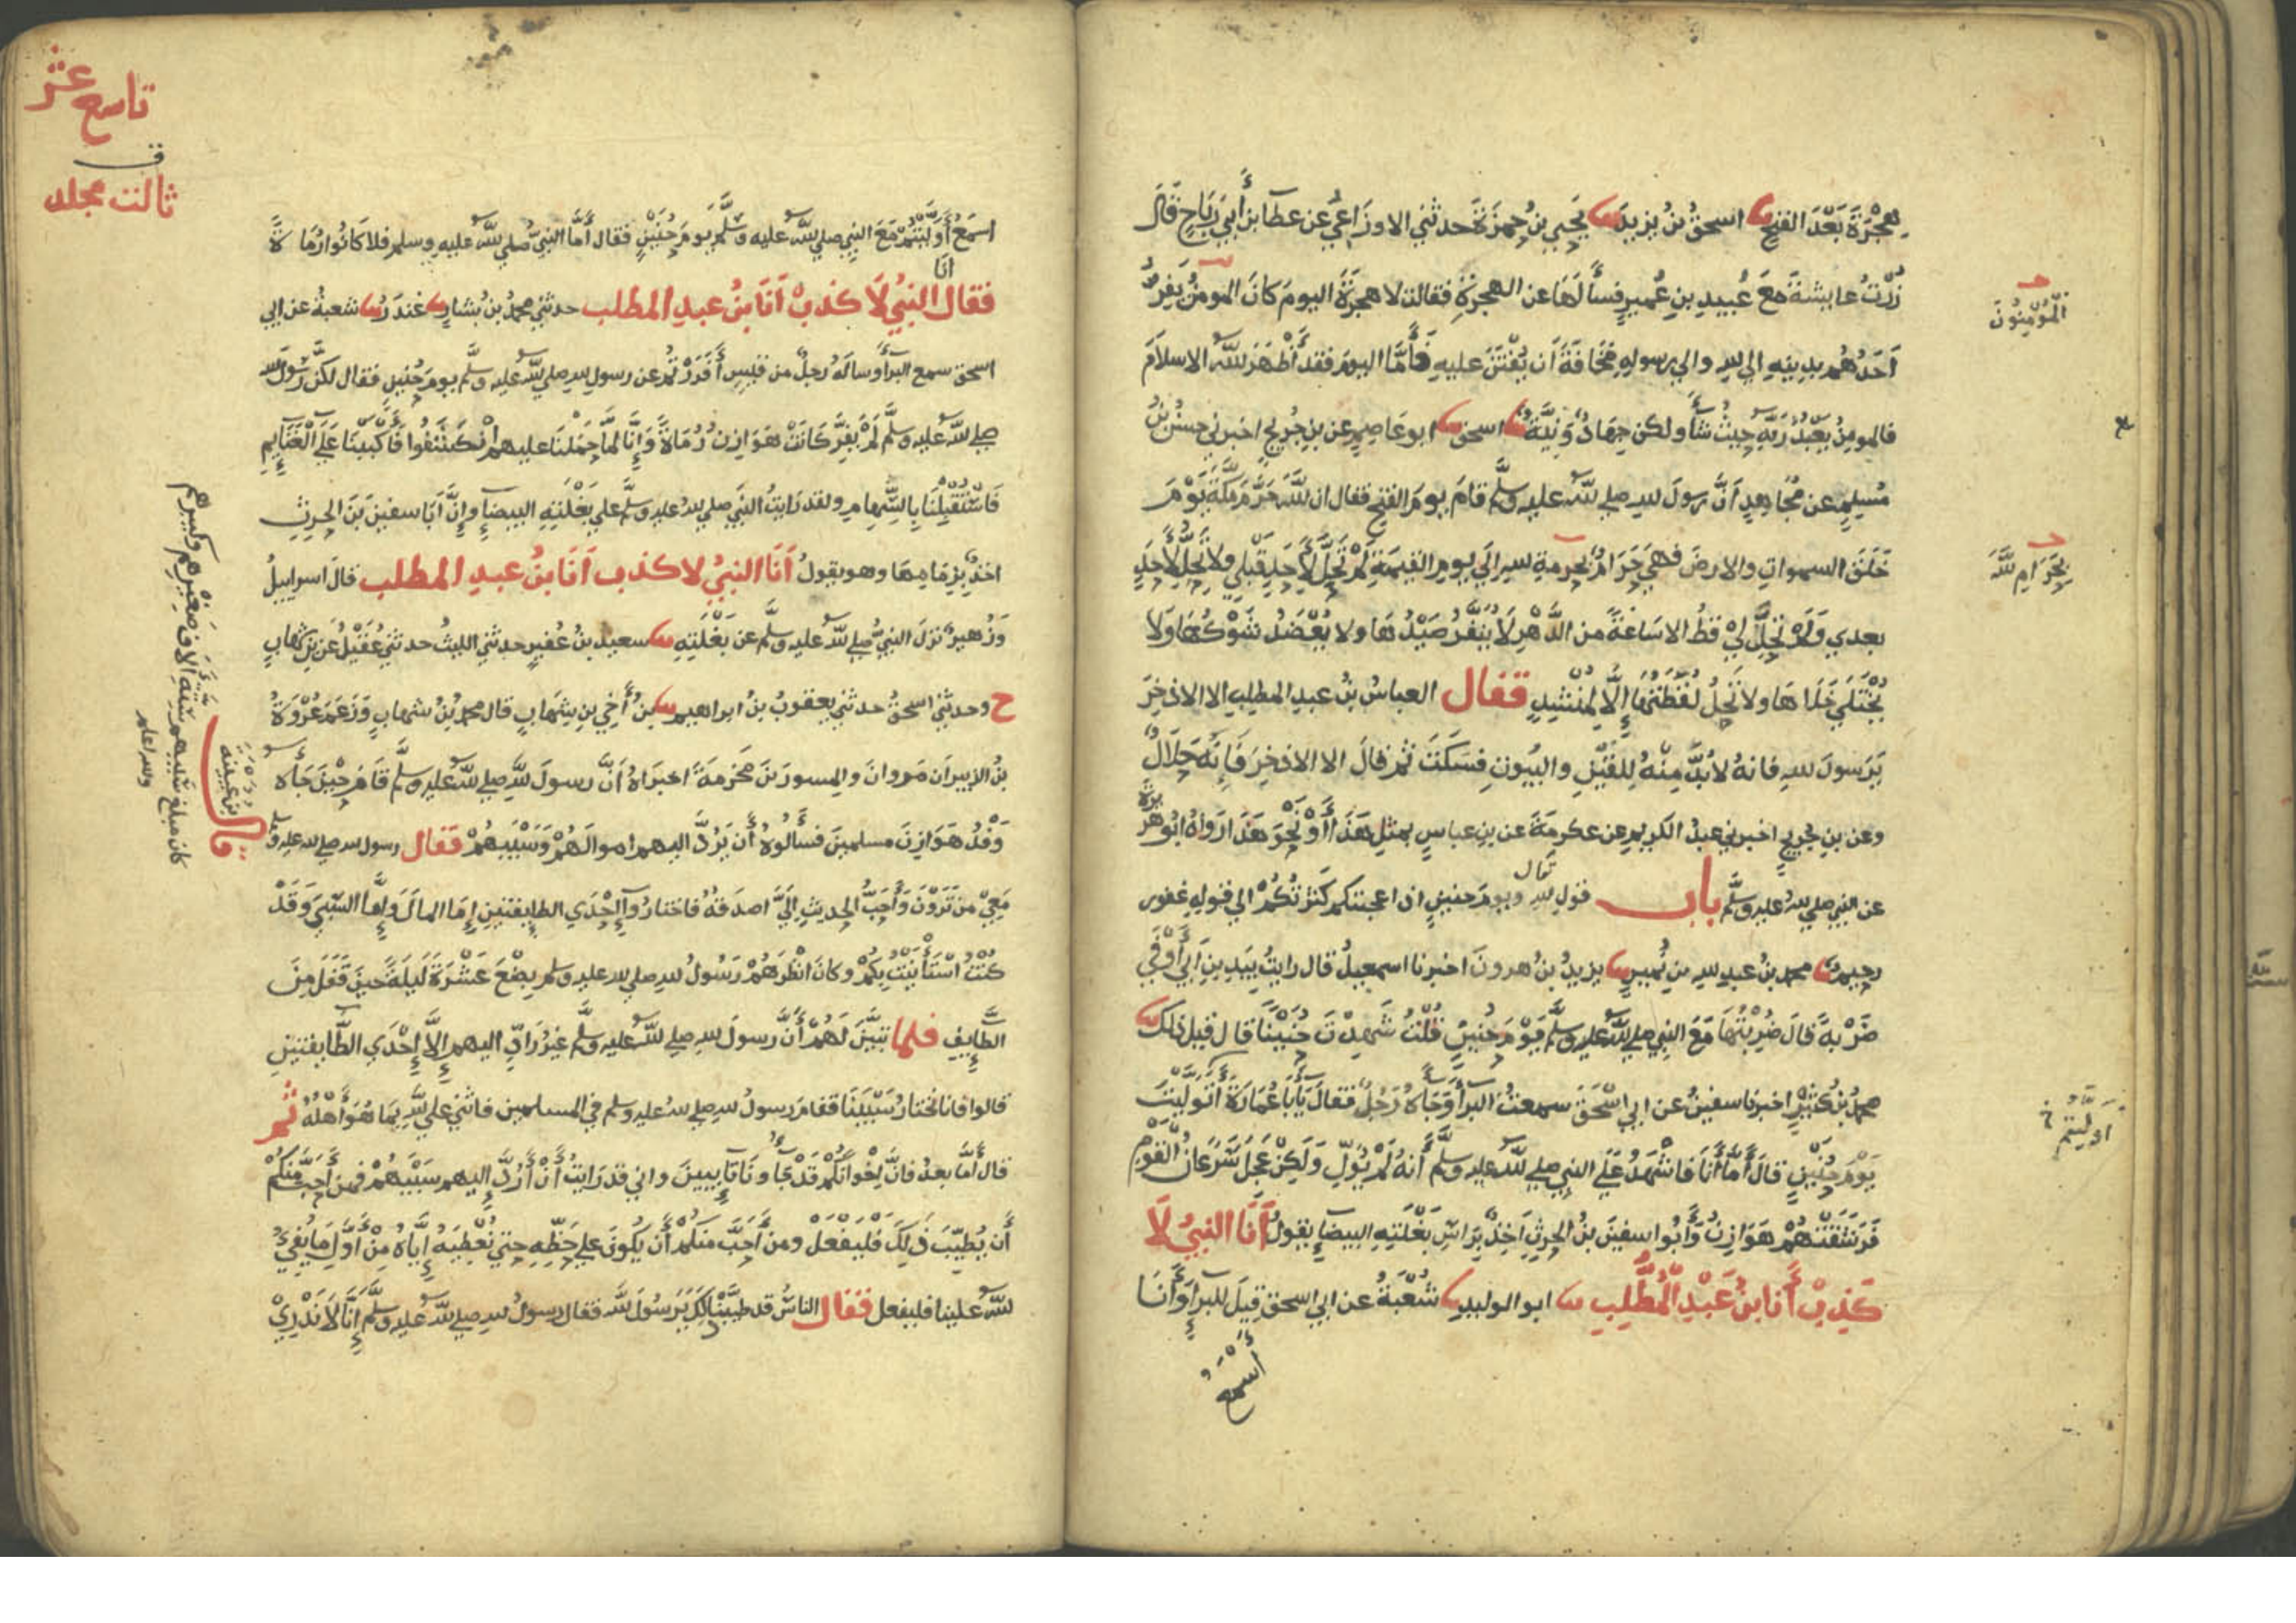 هجرة بعد الفتح نا اسحق بن يزيد نا يحيى بن حمزة حدثني الاوزاعي عن عطا بن أبي رباح قال
زرت عايشة مع عبيد بن عمير فسألها عن الهجرة فقالت لا هجرة اليوم كان المومن يفر
المؤمنون
أحدهم بدينه الي لله والي رسوله مخافة أن يفتن عليه فأما اليوم فقد أظهر لله الاسلام
فالمومن يعبد ربه حيث شأ ولكن جهاد ونية نا اسحق نا ابو عاصم عن بن جريج اخبرني حسن بن
مسلم عن مجاهد أن رسول لله صلي لله عليه وسلم قام يوم الفتح فقال ان لله حرم مكة يوم
خلق السموات والارض فهي حرام بحرمة لله الي يوم القيمة لم تحل لأحد قبلي ولا تحل لأحد
بحرام لله
بعدي ولم تحلل لي قط الا ساعة من الدهر لا ينفر صيدها ولا يعضد شوكها ولا
يختلي خلاها ولا تحل لقطتها إلا لمنشد فقال العباس بن عبد المطلب الا الاذخر
يرسول لله فانه لا بد منه للقين والبيوت فسكت ثم قال الا الاذخر فإنه حلال
وعن بن جريج اخبرني عبد الكريم عن عكرمة عن بن عباس بمثل هذا أو نحو هذا رواه ابو هريرة
عن النبي صلي لله عليه وسلم باب قول لله تعال ويوم حنين اذ اعجبتكم كثرتكم الي قوله غفور
رحيم نا محمد بن عبد لله بن نمير نا يزيد بن هرون اخبرنا اسمعيل قال رايت بيد بن أبي أوفي
ضربة قال ضربتها مع النبي صلي لله عليه وسلم يوم حنين قلت شهدت حنينا قال قبل ذلك نا
محمد بن كثير اخبرنا سفين عن ابي اسحق سمعت البرأ وجاه رجل فقال يأبا عمارة أتوليت
أوليتم خ
يوم حنين قال أما أنا فاشهد علي النبي صلي لله عليه وسلم أنه لم يول ولكن عجل سرعان القوم
فرشقتهم هوازن وأبو سفين بن الحرث اخذ براس بغلته البيضا يقول أنا النبي لا
كذب أنا بن عبد المطلب نا ابو الوليد نا شعبة عن ابي اسحق قيل للبرأ وأنا
أسمع
تاسع عشر
ف
ثالث مجلد
اسمع أوليتم مع النبي صلي لله عليه وسلم يوم حنين فقال أما النبي صلي لله عليه وسلم فلا كانوا رماة
فقال انا النبي لا كذب أنا بن عبد المطلب حدثني محمد بن بشار نا غندر نا شعبة عن ابي
اسحق سمع البرأ وساله رجل من قيس أفررتم عن رسول لله صلي لله عليه وسلم يوم حنين فقال لكن رسول لله
صلي لله عليه وسلم لم يفر كانت هوازن رماة وإنا لما حملنا عليهم انكشفوا فأكببنا علي الغنايم
فاستقبلنا بالسهام ولقد رايت النبي صلي لله عليه وسلم علي بغلته البيضا وإن أبا سفين بن الحرث
اخذ بزمامها وهو يقول أنا النبي لا كذب أنا بن عبد المطلب قال اسراييل
وزهير نزل النبي صلي لله عليه وسلم عن بغلته نا سعيد بن عفير حدثني الليث حدثني عقيل عن بن شهاب
ح وحدثني اسحق حدثني يعقوب بن ابراهيم نا بن أخي بن شهاب قال محمد بن شهاب وزعم عروة
بن الزبير أن مروان والمسور بن مخرمة اخبراه أن رسول لله صلي لله عليه وسلم قام حين جأه
وفد هوازن مسلمين فسألوه أن يرد اليهم اموالهم وسبيهم فقال رسول لله صلي لله عليه وسلم
معي من ترون وأحب الحديث الي اصدقه فاختاروا إحدي الطايفتين إما المال وإما السبي وقد
كنت استأنيت بكم وكان انظرهم رسول لله صلي لله عليه وسلم بضع عشرة ليلة حين قفل من
الطايف فلما تبين لهم أن رسول لله صلي لله عليه وسلم غير راد اليهم إلا إحدي الطايفتين
قالوا فانا نختار سبينا فقام رسول لله صلي لله عليه وسلم في المسلمين فاثني علي لله بما هو أهله ثم
قال أما بعد فان إخوانكم قد جأونا تايبين واني قد رايت أن أرد إليهم سبيهم فمن أحب منكم
أن يطيب ذلك فليفعل ومن أحب منكم أن يكون علي حظه حتي نعطيه إياه من أول ما يفيء
لله علينا فليفعل فقال الناس قد طيبنا ذلك يرسول لله فقال رسول لله صلي لله عليه وسلم إنا لا ندري
قال بن عيينة
كان مبلغ سبيهم ستة الاف صغيرهم وكبيرهم
ولله اعلم